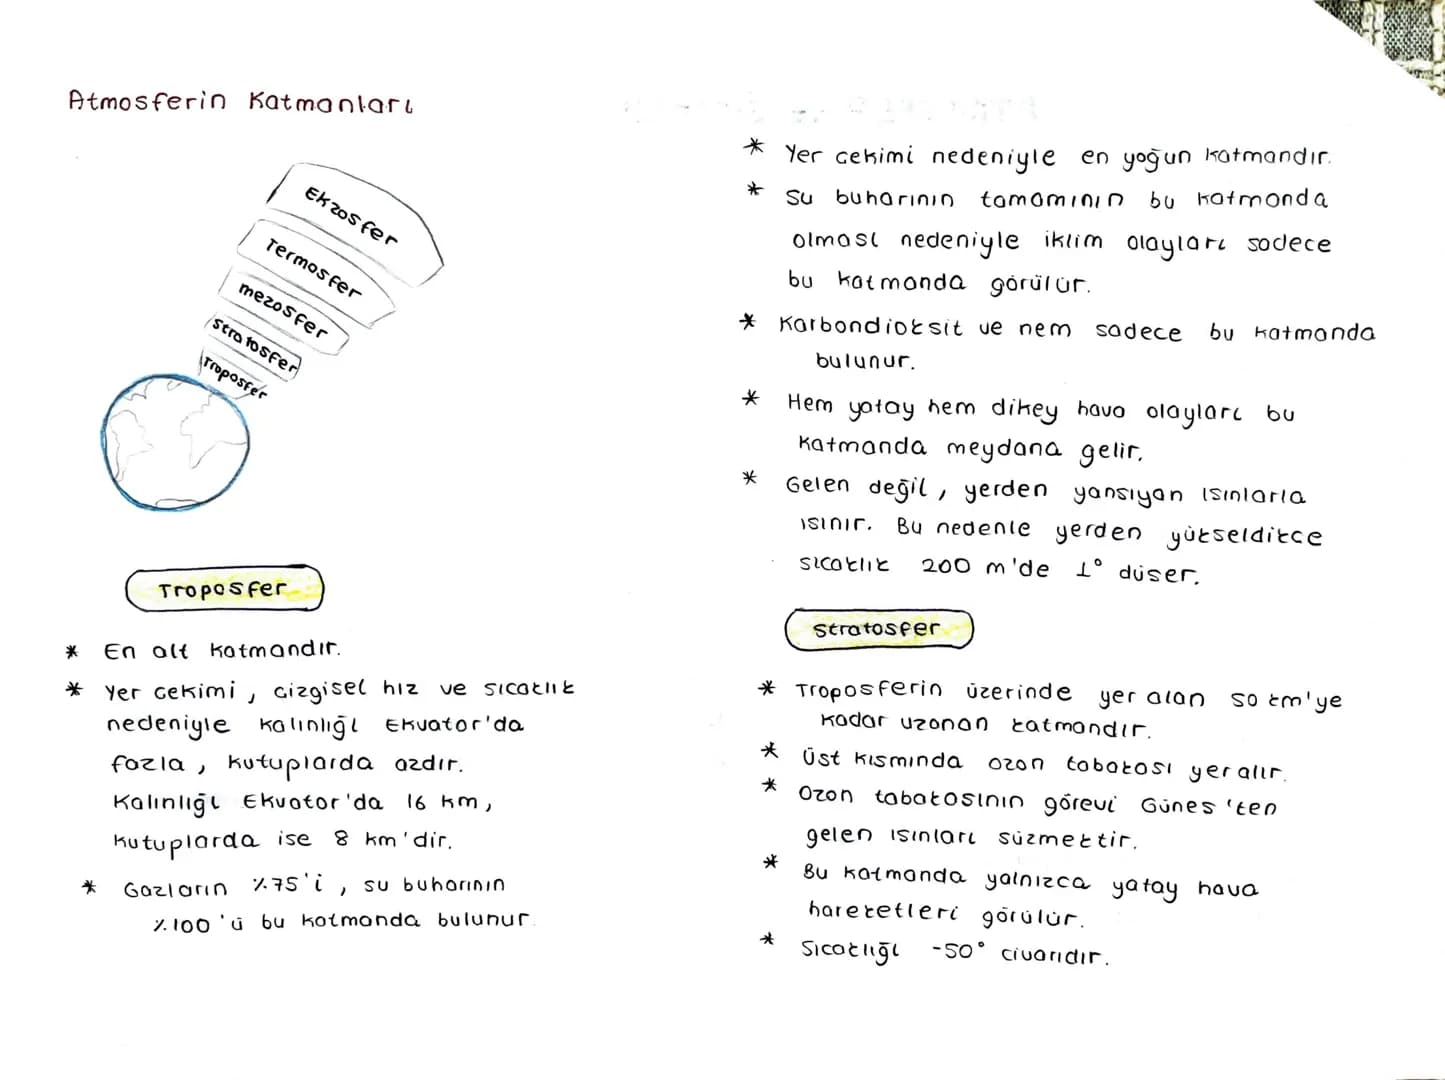 Atmosferin Katmanları
Ekzosfer
Termosfer
mezosfer
stratosfer
Troposfer
Troposfer
* En alt katmandır.
* Yer cekimi, cizgisel hız ve sıcaklık
nedeniyle kalınlığı Ekvator'da
fazla, kutuplarda azdır.
Kalınlığı Ekvator'da 16 km,
kutuplarda ise 8 km'dir.
* Gazların %75'i, su buharının
%100'ü bu katmanda bulunur.
* Yer cekimi nedeniyle en yoğun katmandır.
* Su buharının tamamının bu katmanda
olması nedeniyle iklim olayları sadece
bu katmanda görülür.
* Karbondioksit ve nem sadece bu katmanda
bulunur.
* Hem yatay hem dikey hava olayları bu
katmanda meydana gelir.
* Gelen değil, yerden yansıyan ısınlarla
ısınır. Bu nedenle yerden yükseldikce
sıcaklık 200 m'de 1° düser.
Stratosfer
* Troposferin üzerinde yer alan 50 km'ye
kadar uzanan katmandır.
* Üst kısmında ozon tabakası yer alır.
* Ozon tabakasının görevi Günes'ten
gelen ısınları süzmektir.
* Bu katmanda yalnızca yatay hava
hareketleri görülür.
* Sıcaklığı -50° civarıdır.